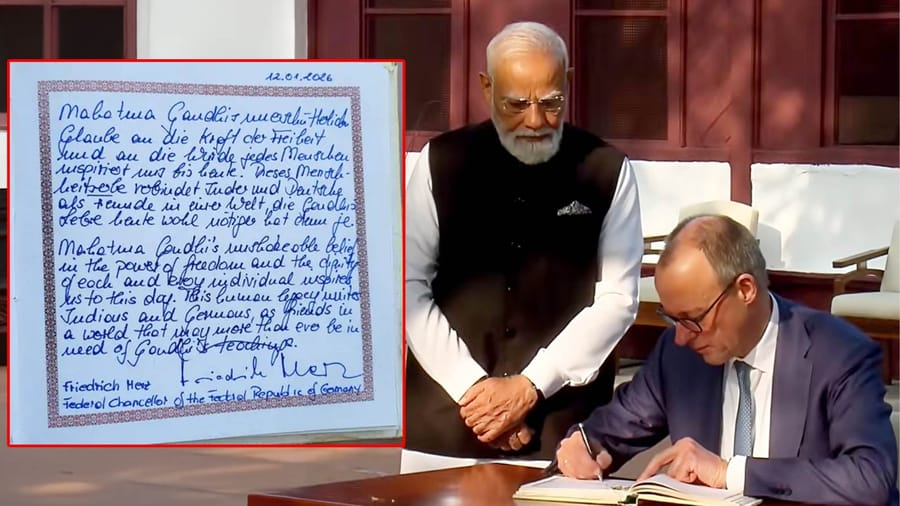 12.01.2026
Mahatma Gandhi's unerschütterlicher
Glaube an die Kraft der Freiheit
und an die Würde jedes Menschen
inspiriert uns bis heute. Dieses Mensch-
heitserbe verbindet Inder und Deutsche
als Freunde in einer Welt, die Gandhis
Lehre heute wohl nötiger hat denn je.
Mahatma Gandhi's unshakeable belief
in the power of freedom and the dignity
of each and every individual inspires
us to this day. This human legacy unites
Indians and Germans as friends in
a world that may more than ever be in
need of Gandhi's teachings.
Friedrich Merz
Friedrich Merz
Federal Chancellor of the Federal Republic of Germany